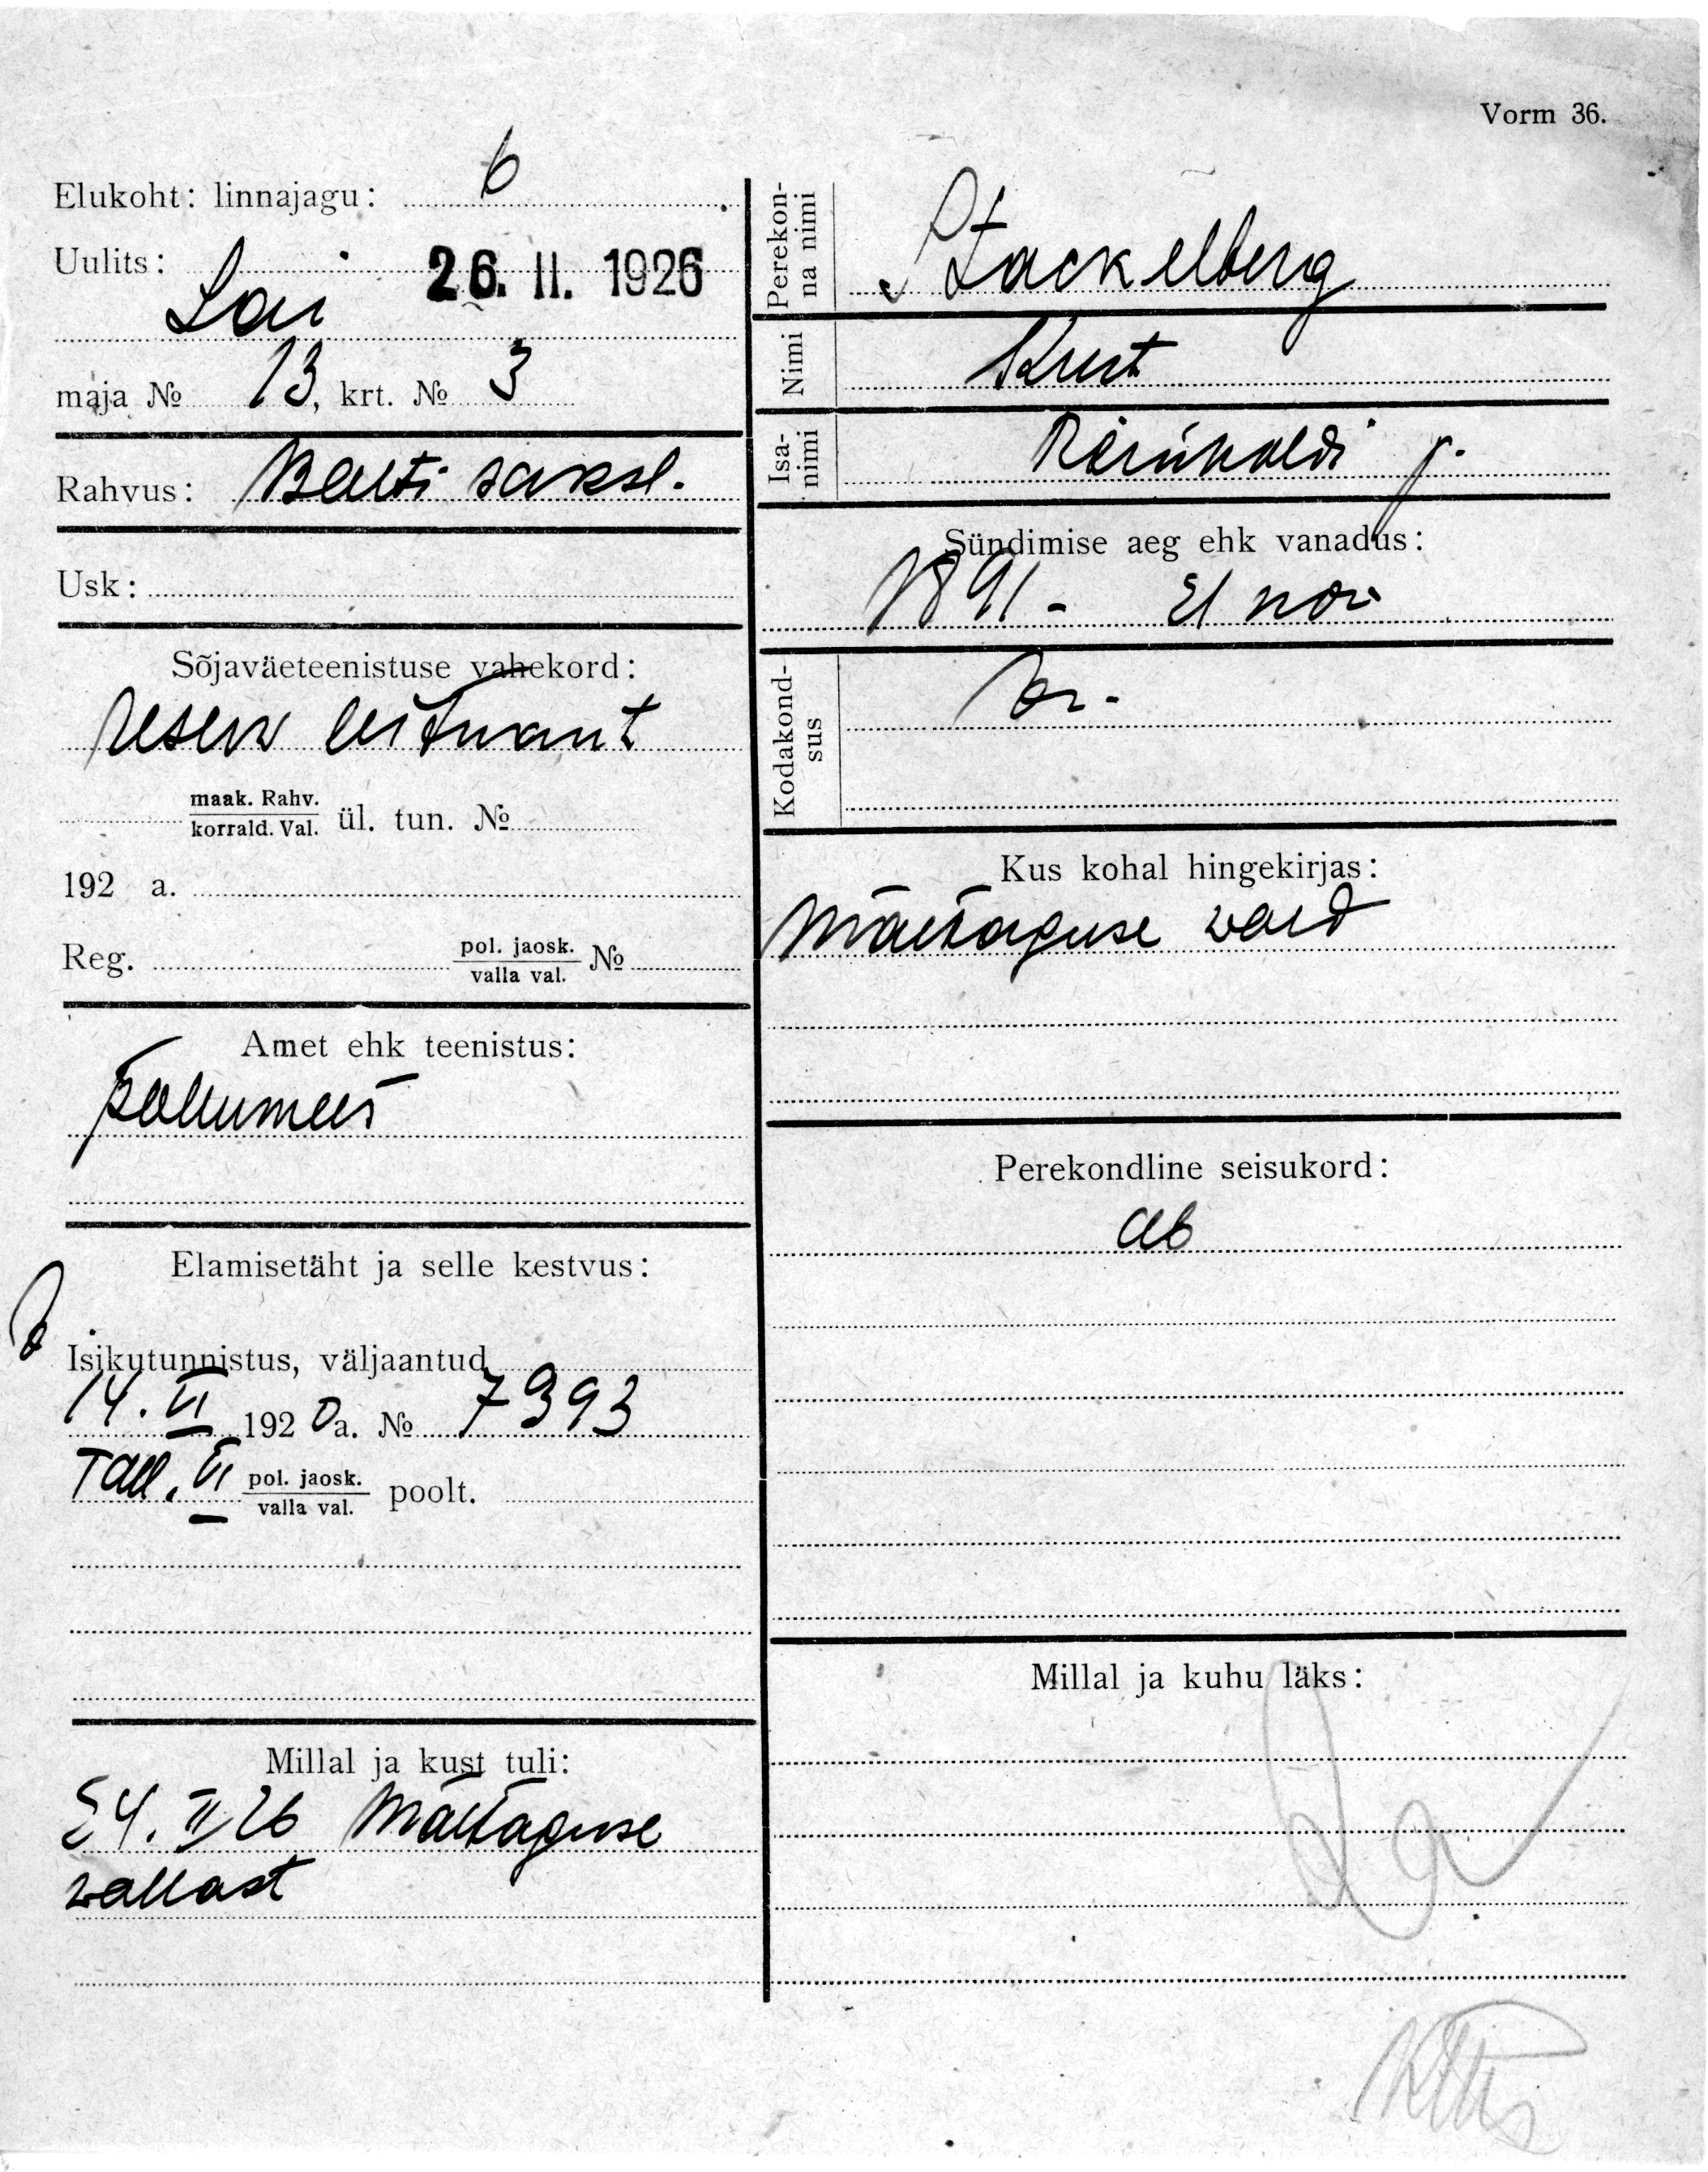 Vorm 36.
Elukoht: linnajagu: 6
Uulits: 26. II. 1926
Lai
maja № 13, krt. № 3
Rahvus: Balti saksl.
Usk:
Sõjaväeteenistuse vahekord:
reserv leitnant
maak. Rahv.
korrald. Val. ül. tun. №
192 a.
Reg. pol. jaosk.
valla val. №
Amet ehk teenistus:
põllumees
Elamisetäht ja selle kestvus:
Isikutunnistus, väljaantud
14. VI 1920 a. № 7393
Tall. VI pol. jaosk.
valla val. poolt.
Millal ja kust tuli:
24. II 26 Mäetaguse
wallast
Perekon-
na nimi Stackelberg
Nimi Kurt
Isa-
nimi Reinholdi p.
Sündimise aeg ehk vanadus:
1891 - 21 nov
Kodakond-
sus
Kus kohal hingekirjas:
Mäetaguse wald
Perekondline seisukord:
ab
Millal ja kuhu läks: